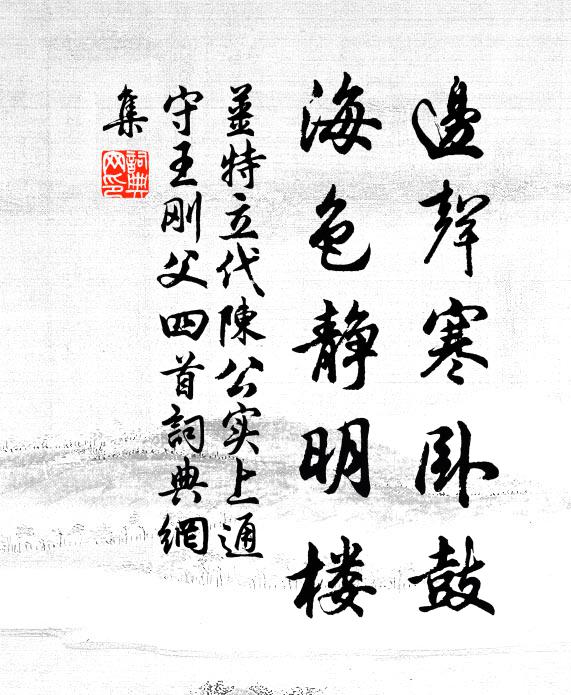 邊聲寒卧鼓
海色静明楼
姜特立代陳公实上通
守王刚父四首詞典網
集
詞典
网印